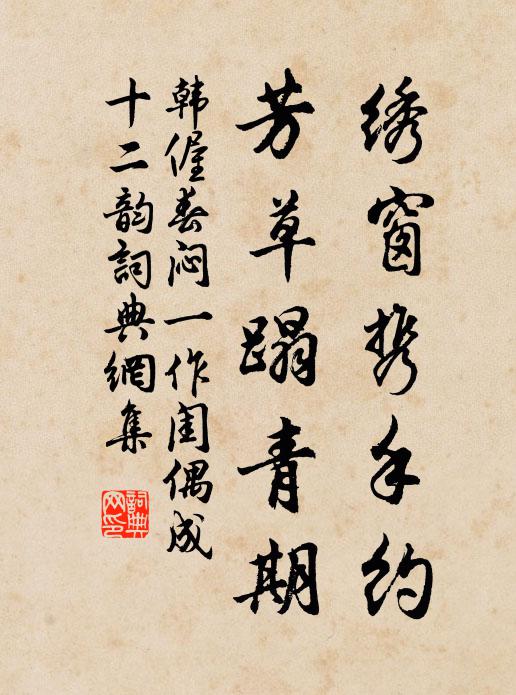 绣窗携手约
芳草蹋青期
韩偓春闷一作闺偶成
十二韵詞典網集
詞典网印